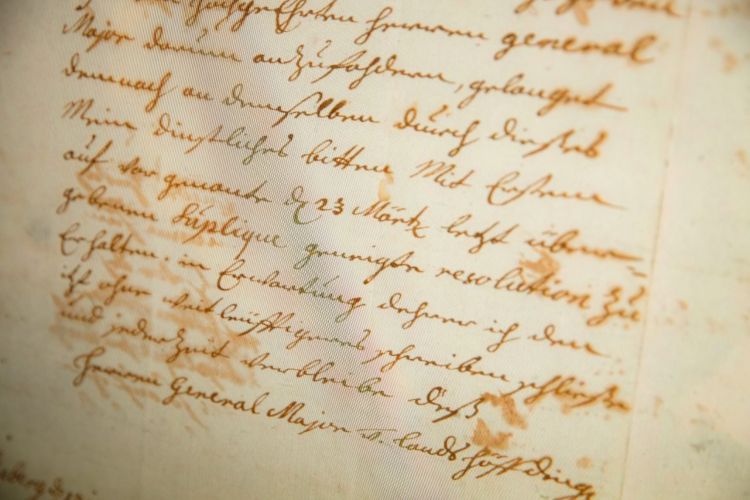 hochgeehrten herren general
Major darum anzufohdern, gelanget
demnach an demselben durch dieses
Mein dinstliches bitten Mit Erstem
auf vor genante d 23 Martz letzt über-
gebenen Suplique geneigte resolution zu
Erhalten. in Erwartung dehrer ich den
itz ohne weitläufftigeres schreiben schließe
und jederzeit verbleibe deß
herren General Major v. landshöffdings